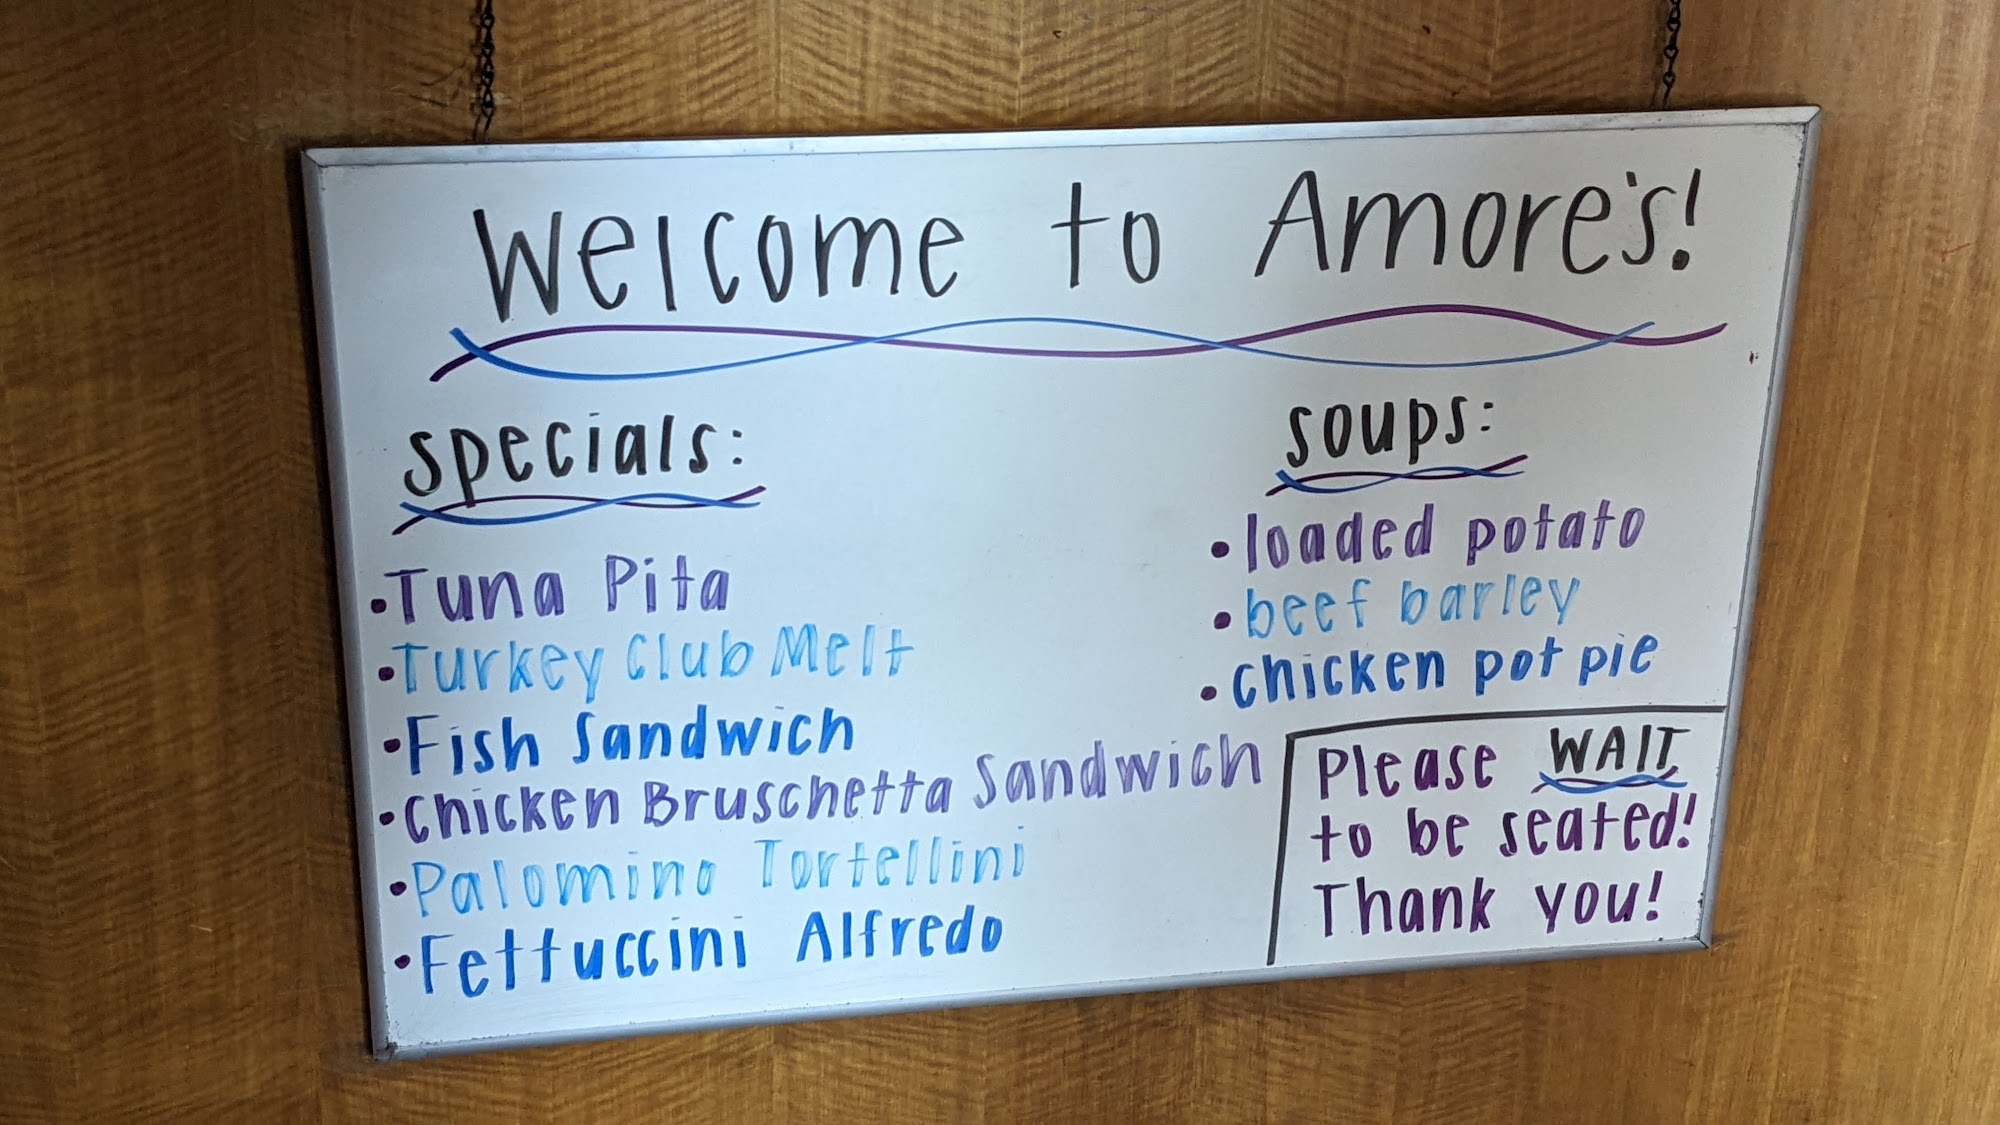 Welcome to Amore's!
specials:
• Tuna Pita
• Turkey Club Melt
• Fish Sandwich
• Chicken Bruschetta Sandwich
• Palomino Tortellini
• Fettuccini Alfredo
soups:
• loaded potato
• beef barley
• chicken pot pie
Please WAIT
to be seated!
Thank you!